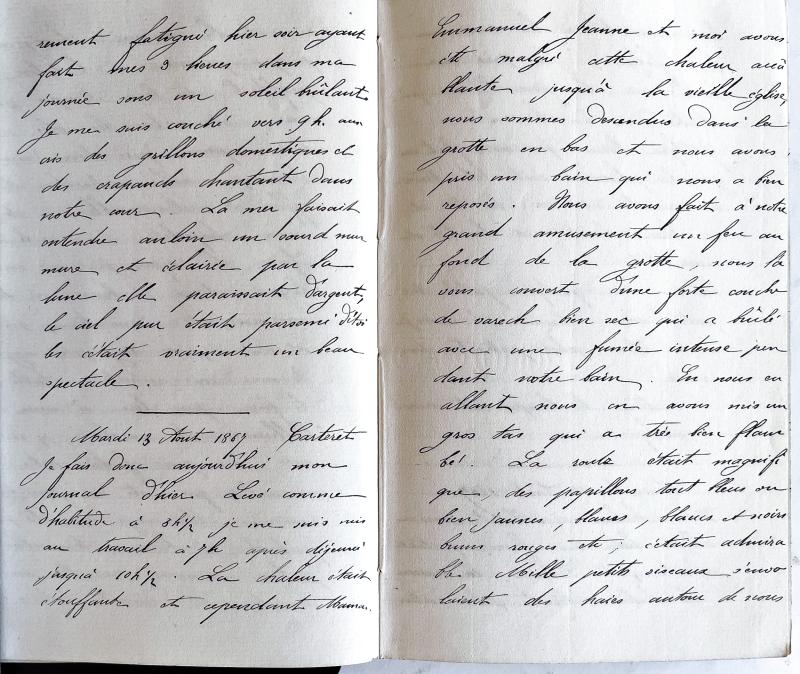 rement fatigué hier soir ayant
fait mes 3 lieues dans ma
journée sous un soleil brûlant.
Je me suis couché vers 9 h. aux
cris des grillons domestiques et
des crapauds chantant dans
notre cour. La mer faisait
entendre au loin un sourd mur
mure et éclairée par la
lune elle paraissait d'argent,
le ciel pur était parsemé d'étoi
les c'était vraiment un beau
spectacle.
Mardi 13 Aout 1867 Carteret
Je fais donc aujourd'hui mon
journal d'hier. Levé comme
d'habitude à 5h½ je me suis mis
au travail à 7h après déjeuné
jusqu'à 10h½. La chaleur était
étouffante et cependant Maman
Emmanuel Jeanne et moi avons
été malgré cette chaleur acca
blante jusqu'à la vieille église,
nous sommes descendus dans la
grotte en bas et nous avons
pris un bain qui nous a bien
reposés. Nous avons fait à notre
grand amusement un feu au
fond de la grotte, nous l'a
vons couvert d'une forte couche
de varech bien sec qui a brûlé
avec une fumée intense pen
dant notre bain. En nous en
allant nous en avons mis un
gros tas qui a très bien flam
bé. La route était magnifi
que, des papillons tout bleus ou
bien jaunes, blancs, blancs et noirs
bruns rouges etc; c'était admira
ble. Mille petits oiseaux s'envo
laient des haies autour de nous